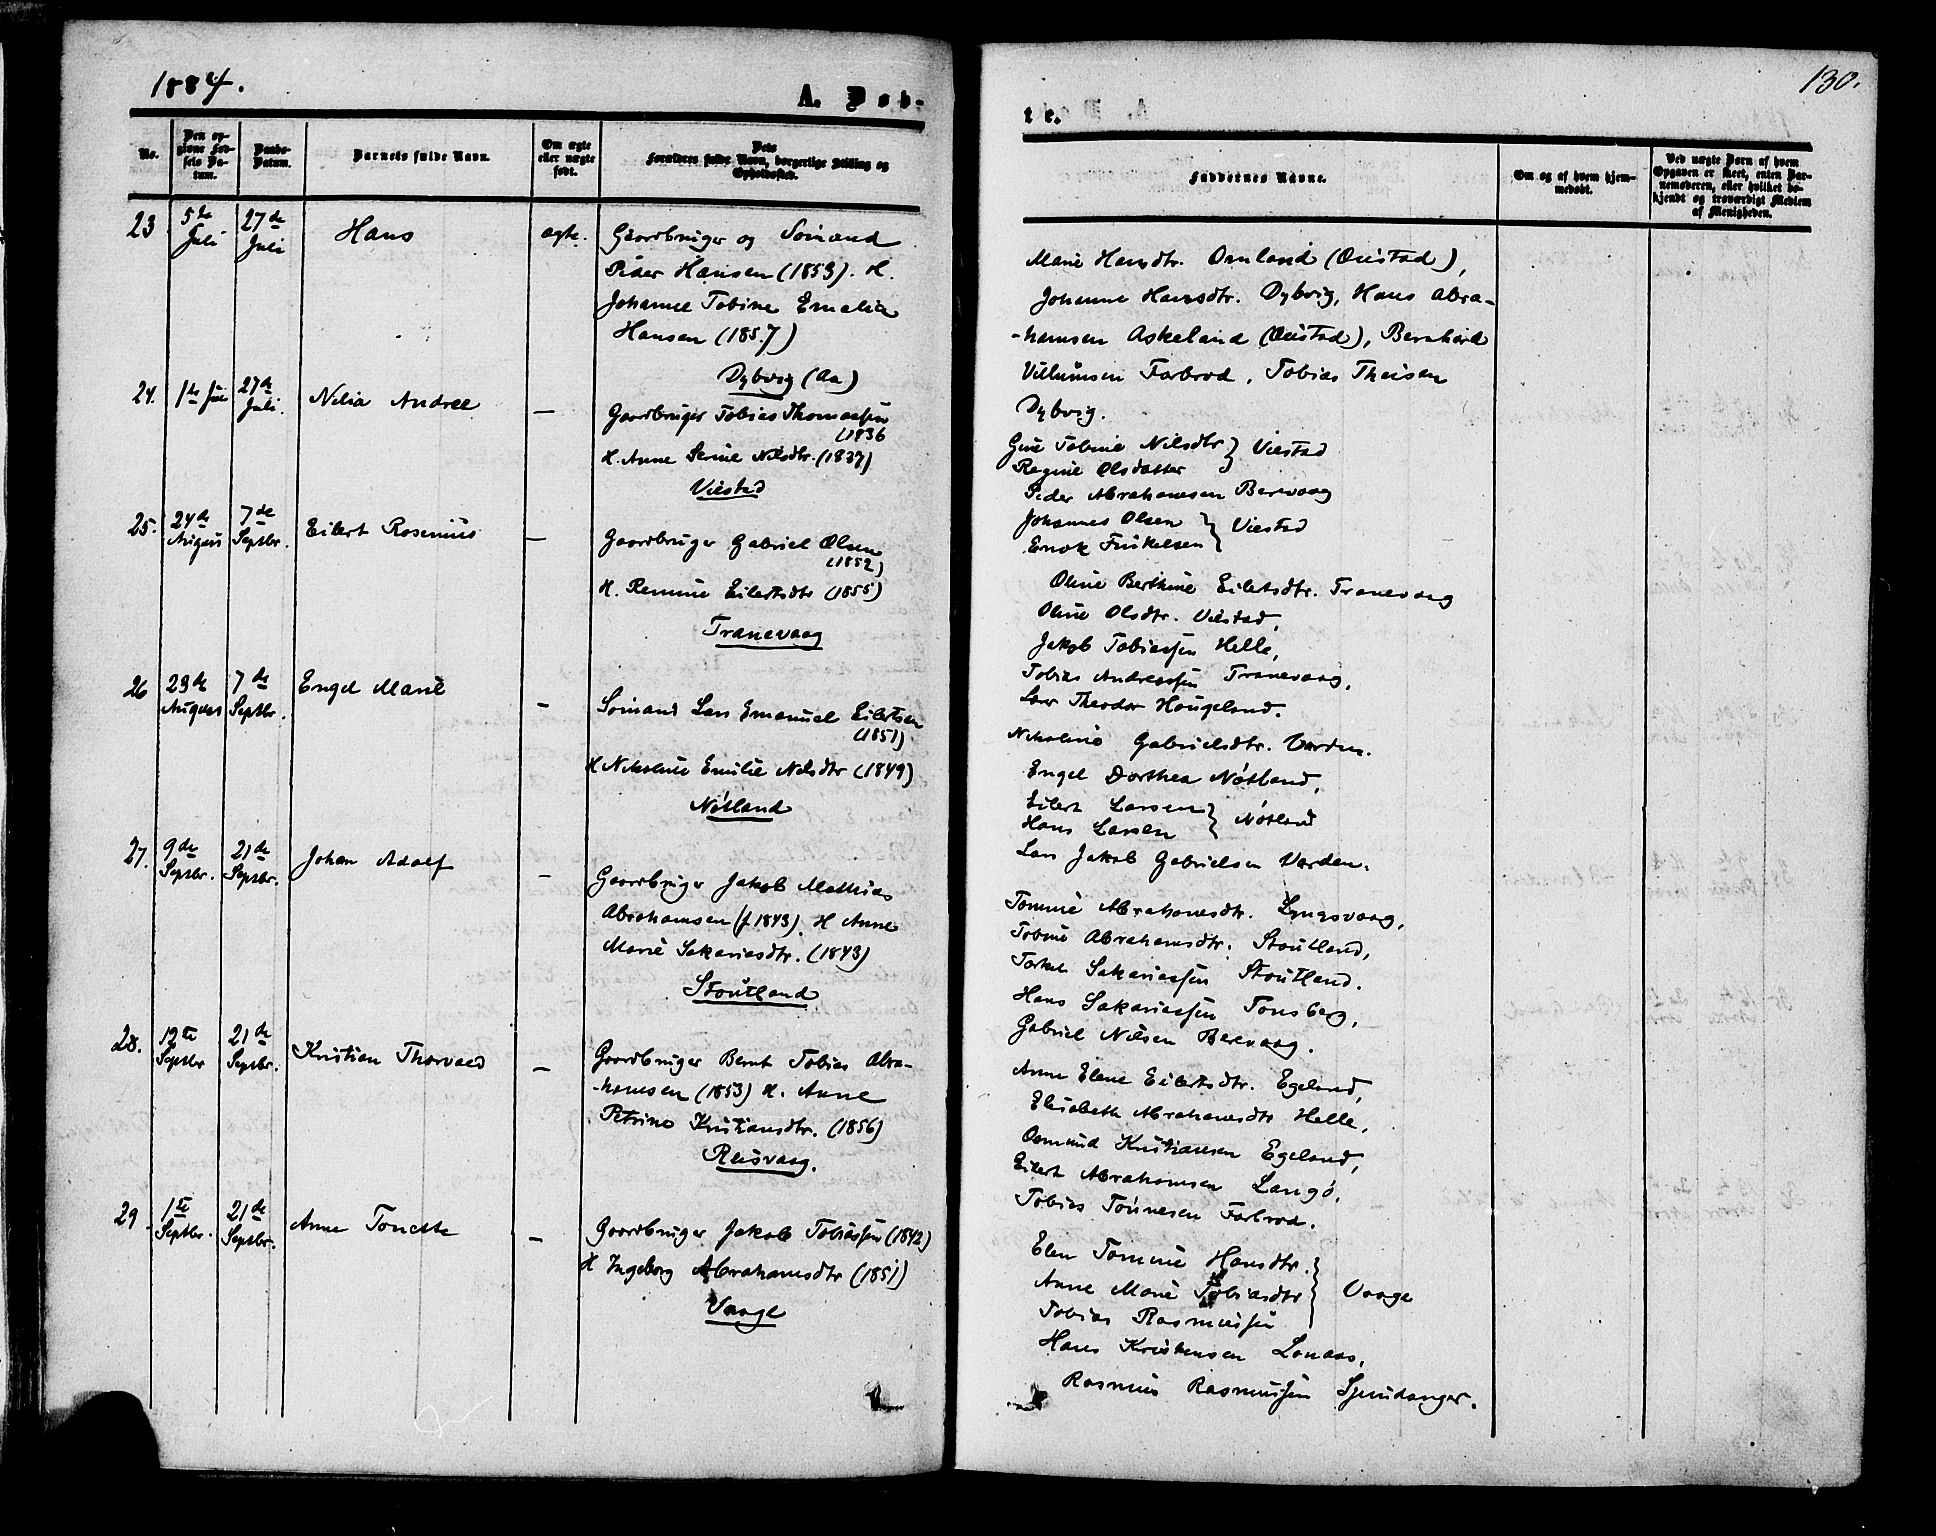 1884.
A. Døb-
No.
Den op-
givne Fød-
sels Da-
tum.
Daabs-
Datum.
Barnets fulde Navn.
Om ægte
eller uægte
født.
Dets
Forældres fulde Navn, borgerlige Stilling og
Opholdssted.
23
5te
Juli
27de
Juli
Hans
ægte.
Gaardbruger og Sømand
Peder Hansen (1853). H.
Johanne Tobine Emalia
Hansen (1857)
Dybvig (Aa)
24.
1te Juli
27de
Juli.
Nilia Andree
—
Gaardbruger Tobias Thomassen
(1836
H. Anne Serine Nilsdtr. (1837)
Viestad
25.
24de
August
7de
Septbr.
Eilert Rosenius
—
Gaardbruger Gabriel Olsen
(1852)
H. Remine Eilertsdtr (1855)
Tranevaag
26
23de
August
7de
Septbr.
Engel Marie
—
Sømand Lars Emanuel Eilertsen
(1851)
H Nikoline Emilie Nilsdtr (1849)
Nøtland
27.
9de
Septbr.
21de
Septbr.
Johan Adolf
—
Gaardbruger Jakob Mathias
Abrahamsen (f 1843). H Anne
Marie Sakariasdtr. (1843)
Stoutland
28.
12te
Septbr
21de
Septbr.
Kristian Thorvald
—
Gaardbruger Bernt Tobias Abra-
-hamsen (1853) H. Anne
Petrine Kristiansdtr. (1856)
Reisvaag.
29
1te
Septbr.
21de
Septbr.
Anne Tonette
—
Gaardbruger Jakob Tobiassen (1842)
H Ingeborg Abrahamsdtr (1851)
Vaage
130.
te.
Faddernes Navne.
Om og af hvem hjem-
medøbt.
Ved uægte Børn af hvem
Opgaven er skeet, enten Bar-
nemoderen, eller hvilket be-
kjendt og troværdigt Medlem
af Menigheden.
Marie Hansdtr. Omland (Øiestad),
Johanne Hansdtr. Dybvig, Hans Abra-
-hamsen Askeland (Øiestad), Bernhard
Villumsen Farbrod, Tobias Theisen
Dybvig.
Gine Tobine Nilsdtr } Viestad
Regine Olsdatter
Peder Abrahamsen Berevaag
Johannes Olsen } Viestad
Enok Finkelsen
Oline Berthine Eilertsdtr. Tranevaag
Oline Olsdtr. Viestad,
Jakob Tobiassen Helle,
Tobias Andreassen Tranevaag,
Lars Theodor Hougeland.
Nikoline Gabrielsdtr. Varden.
Engel Dorthea Nøtland,
Eilert Larsen } Nøtland
Hans Larsen
Lars Jakob Gabrielsen Varden.
Tomine Abrahamsdtr. Lyngsvaag,
Tobine Abrahamsdtr. Stoutland,
Torkel Sakariassen Stoutland.
Hans Sakariassen Tonsberg,
Gabriel Nilsen Berevaag.
Anne Elene Eilertsdtr. Egeland,
Elisabeth Abrahamsdtr Helle,
Osmund Kristiansen Egeland,
Eilert Abrahamsen Langø,
Tobias Tønnesen Farbrod.
Elen Tomine Hansdtr.
Anne Marie Tobiasdtr } Vaage
Tobias Rasmussen
Hans Kristensen Lonaas,
Rasmus Rasmussen Spindanger.